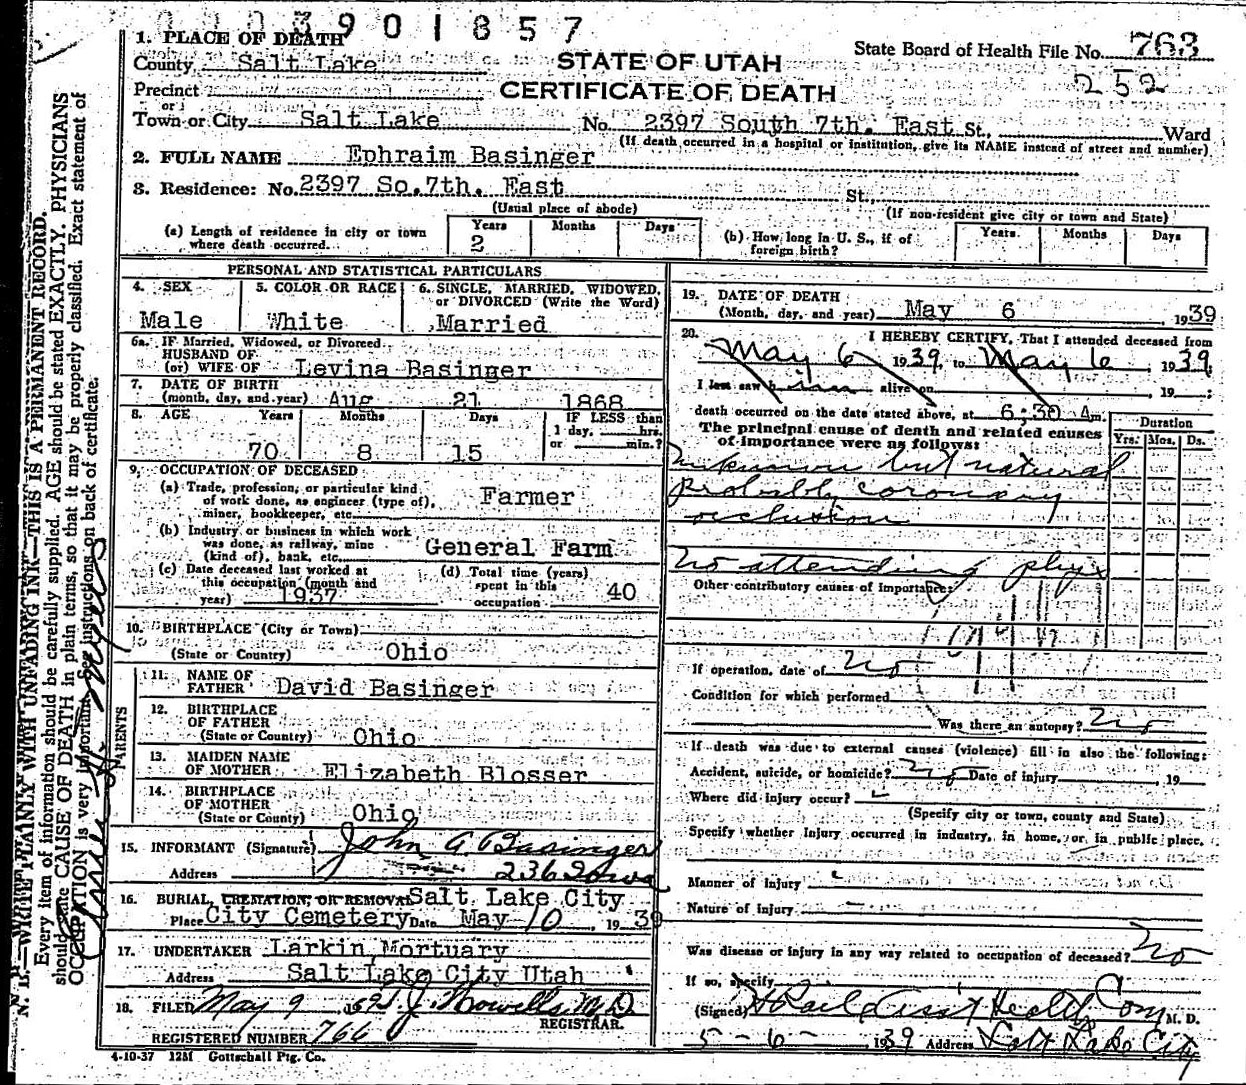 003901857
1. PLACE OF DEATH
State Board of Health File No. 763
County Salt Lake
STATE OF UTAH
252
Precinct
CERTIFICATE OF DEATH
or
Town or City Salt Lake No. 2397 South 7th. East St., Ward
(If death occurred in a hospital or institution, give its NAME instead of street and number)
2. FULL NAME Ephraim Basinger
3. Residence: No. 2397 So. 7th. East St.,
(Usual place of abode) (If non-resident give city or town and State)
(a) Length of residence in city or town where death occurred. Years 2 Months Days
(b) How long in U. S., if of foreign birth? Years Months Days
PERSONAL AND STATISTICAL PARTICULARS
4. SEX Male
5. COLOR OR RACE White
6. SINGLE, MARRIED, WIDOWED, or DIVORCED (Write the Word) Married
6a. IF Married, Widowed, or Divorced
HUSBAND OF
(or) WIFE OF Levina Basinger
7. DATE OF BIRTH
(month, day, and year) Aug 21 1868
8. AGE Years 70 Months 8 Days 15
IF LESS than 1 day, hrs. or min.?
9. OCCUPATION OF DECEASED
(a) Trade, profession, or particular kind of work done, as engineer (type of), miner, bookkeeper, etc. Farmer
(b) Industry or business in which work was done, as railway, mine (kind of), bank, etc. General Farm
(c) Date deceased last worked at this occupation (month and year) 1937
(d) Total time (years) spent in this occupation 40
10. BIRTHPLACE (City or Town)
(State or Country) Ohio
PARENTS
11. NAME OF FATHER David Basinger
12. BIRTHPLACE OF FATHER
(State or Country) Ohio
13. MAIDEN NAME OF MOTHER Elizabeth Blosser
14. BIRTHPLACE OF MOTHER
(State or County) Ohio
15. INFORMANT (Signature) John A Basinger
Address 236 Iowa
16. BURIAL, CREMATION, OR REMOVAL Salt Lake City
Place City Cemetery Date May 10, 1939
17. UNDERTAKER Larkin Mortuary
Address Salt Lake City Utah
18. FILED May 9 1939 J. Howells M.D.
REGISTRAR.
REGISTERED NUMBER 766
4-10-37 12M Gottschall Ptg. Co.
19. DATE OF DEATH
(Month, day, and year) May 6, 1939
20. I HEREBY CERTIFY, That I attended deceased from
May 6 1939, to May 6, 1939;
I last saw him alive on , 19 ;
death occurred on the date stated above, at 6:30 Am.
The principal cause of death and related causes of importance were as follows:
Duration
Yrs. Mos. Ds.
Unknown but natural
probably coronary
occlusion
No attending phys
Other contributory causes of importance:
If operation, date of No
Condition for which performed
Was there an autopsy? No
If death was due to external causes (violence) fill in also the following:
Accident, suicide, or homicide? No Date of injury 19
Where did injury occur?
(Specify city or town, county and State)
Specify whether injury occurred in industry, in home, or in public place.
Manner of injury
Nature of injury
Was disease or injury in any way related to occupation of deceased? No
If so, specify
(Signed) Ass't Health Com M. D.
5-6- 1939 Address Salt Lake City
N. B.—WRITE PLAINLY WITH UNFADING INK—THIS IS A PERMANENT RECORD.
Every item of information should be carefully supplied. AGE should be stated EXACTLY. PHYSICIANS
should state CAUSE OF DEATH in plain terms, so that it may be properly classified. Exact statement of
OCCUPATION is very important. See instructions on back of certificate.